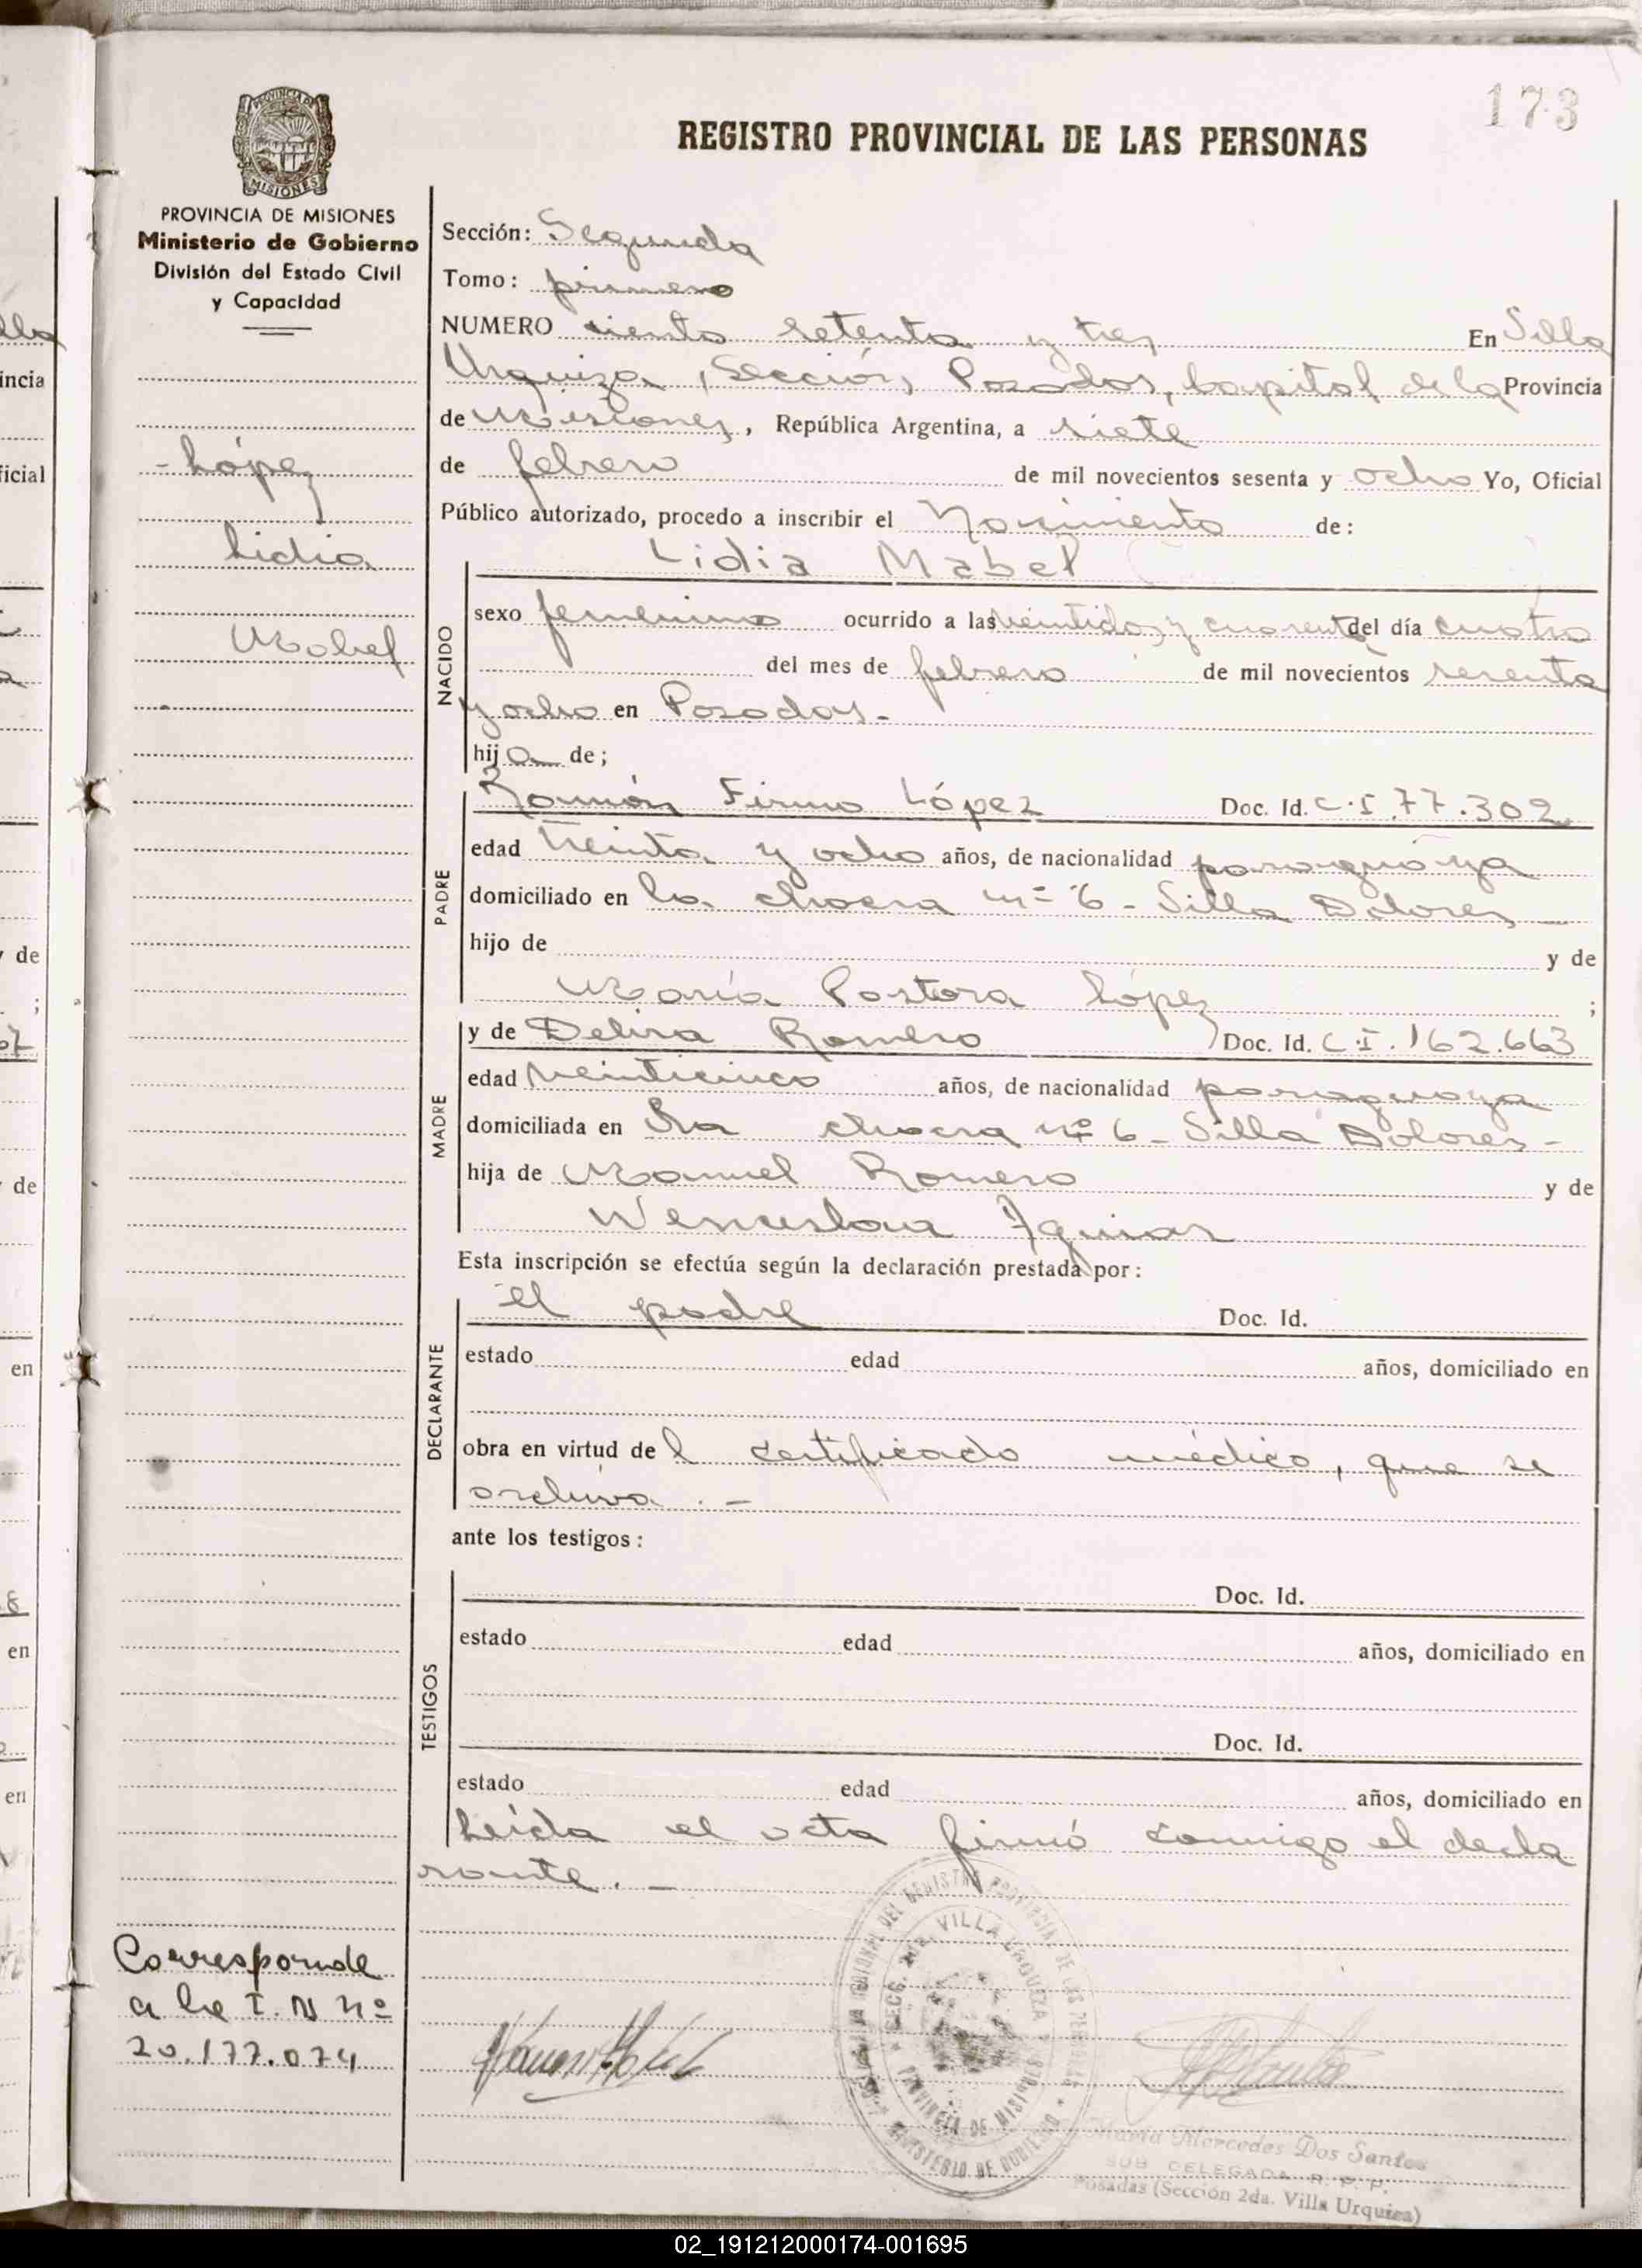 173
REGISTRO PROVINCIAL DE LAS PERSONAS
PROVINCIA DE MISIONES
Ministerio de Gobierno
División del Estado Civil
y Capacidad
López
Lidia
Mabel
Sección: Segunda
Tomo: primero
NUMERO ciento setenta y tres En Villa
Urquiza, Sección, Posadas, Capital de la Provincia
de Misiones, República Argentina, a siete
de febrero de mil novecientos sesenta y ocho Yo, Oficial
Público autorizado, procedo a inscribir el Nacimiento de:
NACIDO
Lidia Mabel
sexo femenino ocurrido a las veintidos y cuarenta del día cuatro
del mes de febrero de mil novecientos sesenta
y ocho en Posadas.-
hija de;
PADRE
Ramón Firmo López Doc. Id. C.I. 77.302
edad treinta y ocho años, de nacionalidad paraguaya
domiciliado en la chacra nº 6 - Villa Dolores
hijo de y de
María Pastora López ;
MADRE
y de Delira Romero Doc. Id. C.I. 162.663
edad veinticinco años, de nacionalidad paraguaya
domiciliada en la chacra nº 6 - Villa Dolores -
hija de Manuel Romero y de
Wenceslaa Aguiar
Esta inscripción se efectúa según la declaración prestada por:
DECLARANTE
el padre Doc. Id.
estado edad años, domiciliado en
obra en virtud del certificado médico, que se
archiva. -
ante los testigos:
TESTIGOS
Doc. Id.
estado edad años, domiciliado en
Doc. Id.
estado edad años, domiciliado en
Leída el acta firmó conmigo el decla
rante. -
Corresponde
a la I. N nº
20.177.074
SECC. 2da. VILLA URQUIZA
PROVINCIA DE MISIONES
MINISTERIO DE GOBIERNO
María Mercedes Dos Santos
SUB DELEGADA R. P. P.
Posadas (Sección 2da. Villa Urquiza)
02_191212000174-001695